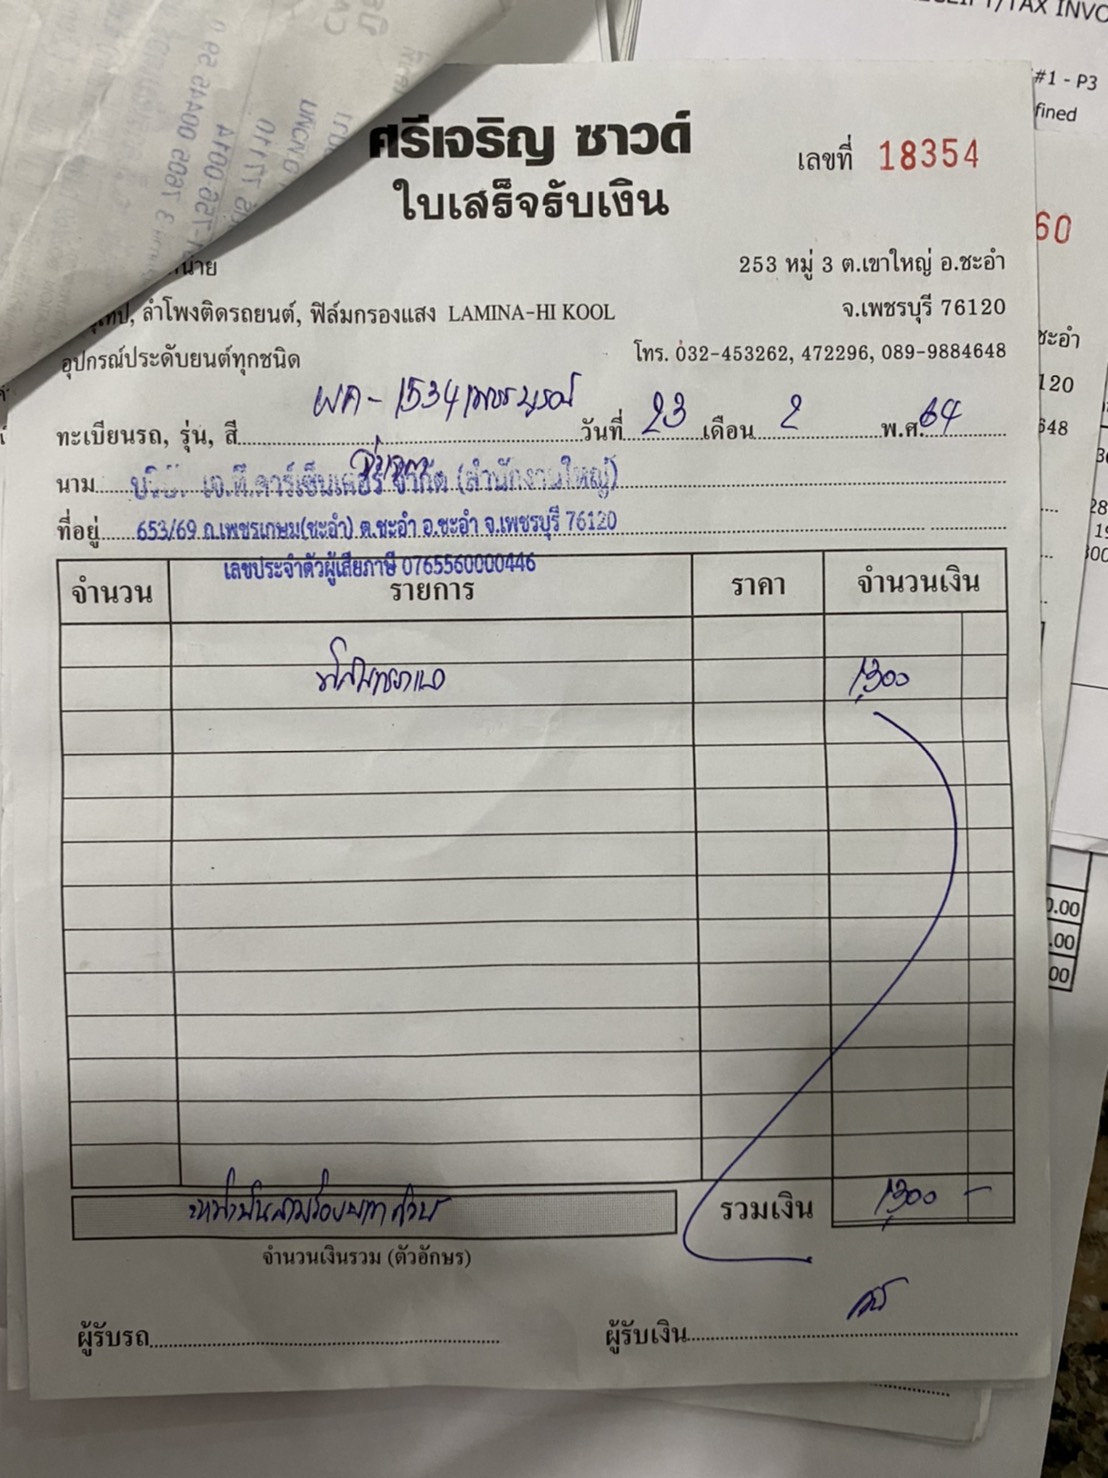 ศรีเจริญ ซาวด์
ใบเสร็จรับเงิน
เลขที่ 18354
253 หมู่ 3 ต.เขาใหญ่ อ.ชะอำ
จ.เพชรบุรี 76120
โทร. 032-453262, 472296, 089-9884648
ลำโพงติดรถยนต์, ฟิล์มกรองแสง LAMINA-HI KOOL
อุปกรณ์ประดับยนต์ทุกชนิด
ทะเบียนรถ, รุ่น, สี 1534 เพชรบูรณ์ วันที่ 23 เดือน 2 พ.ศ. 64
นาม บริษัท เอ.ที.คาร์เซ็นเตอร์ จำกัด (สำนักงานใหญ่)
ที่อยู่ 653/69 ถ.เพชรเกษม(ชะอำ) ต.ชะอำ อ.ชะอำ จ.เพชรบุรี 76120
เลขประจำตัวผู้เสียภาษี 0765560000446
จำนวน รายการ ราคา จำนวนเงิน
1,300
หนึ่งพันสามร้อยบาทถ้วน รวมเงิน 1,300 -
จำนวนเงินรวม (ตัวอักษร)
ผู้รับรถ ผู้รับเงิน
RECEIPT/TAX INVO
#1 - P3
fined
60
ชะอำ
120
648
0.00
.00
00